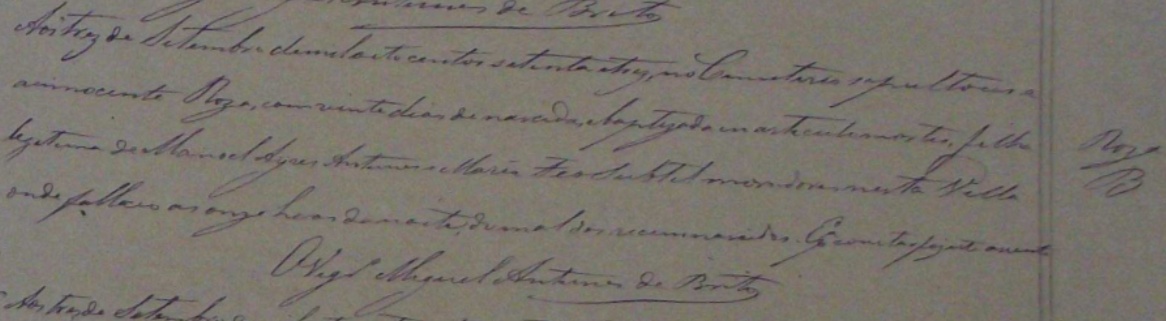 Antunes de Brito
Aos trez de Setembro de mil oito centos setenta e trez, no Cemeterio sepultou-se a
a innocente Roza, com vinte dias de nascida, e baptizada in articulo mortis, filha
legitima de Manoel Ayres Antunes e Maria moradores nesta Villa
onde falleceo as onze horas da noite, de mal dos recemnascidos. E p.ª constar fiz este assento
O Vigrº Miguel Antunes de Brito
Roza
B
Aos trez de Setembro